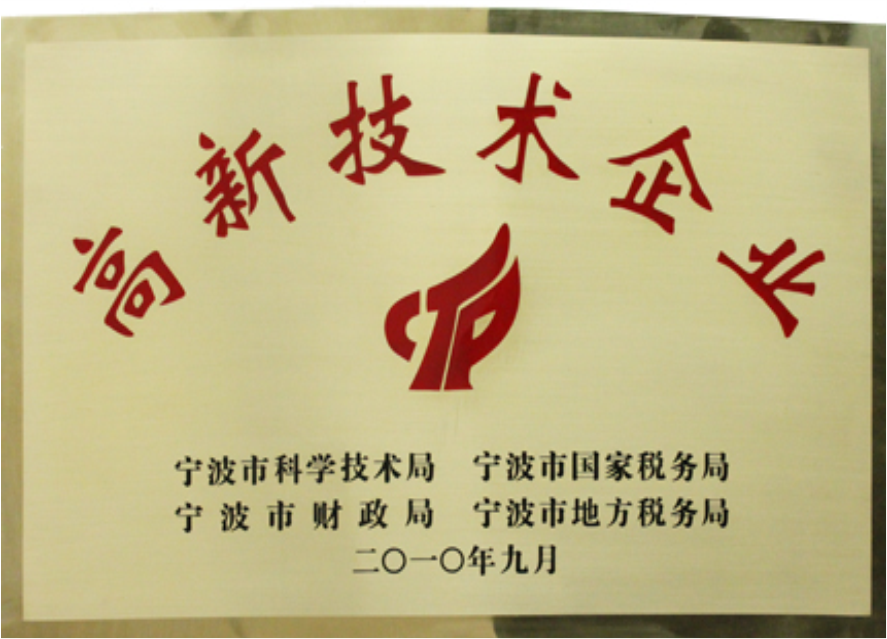 高新技术企业
CTP
宁波市科学技术局 宁波市国家税务局
宁波市财政局 宁波市地方税务局
二〇一〇年九月